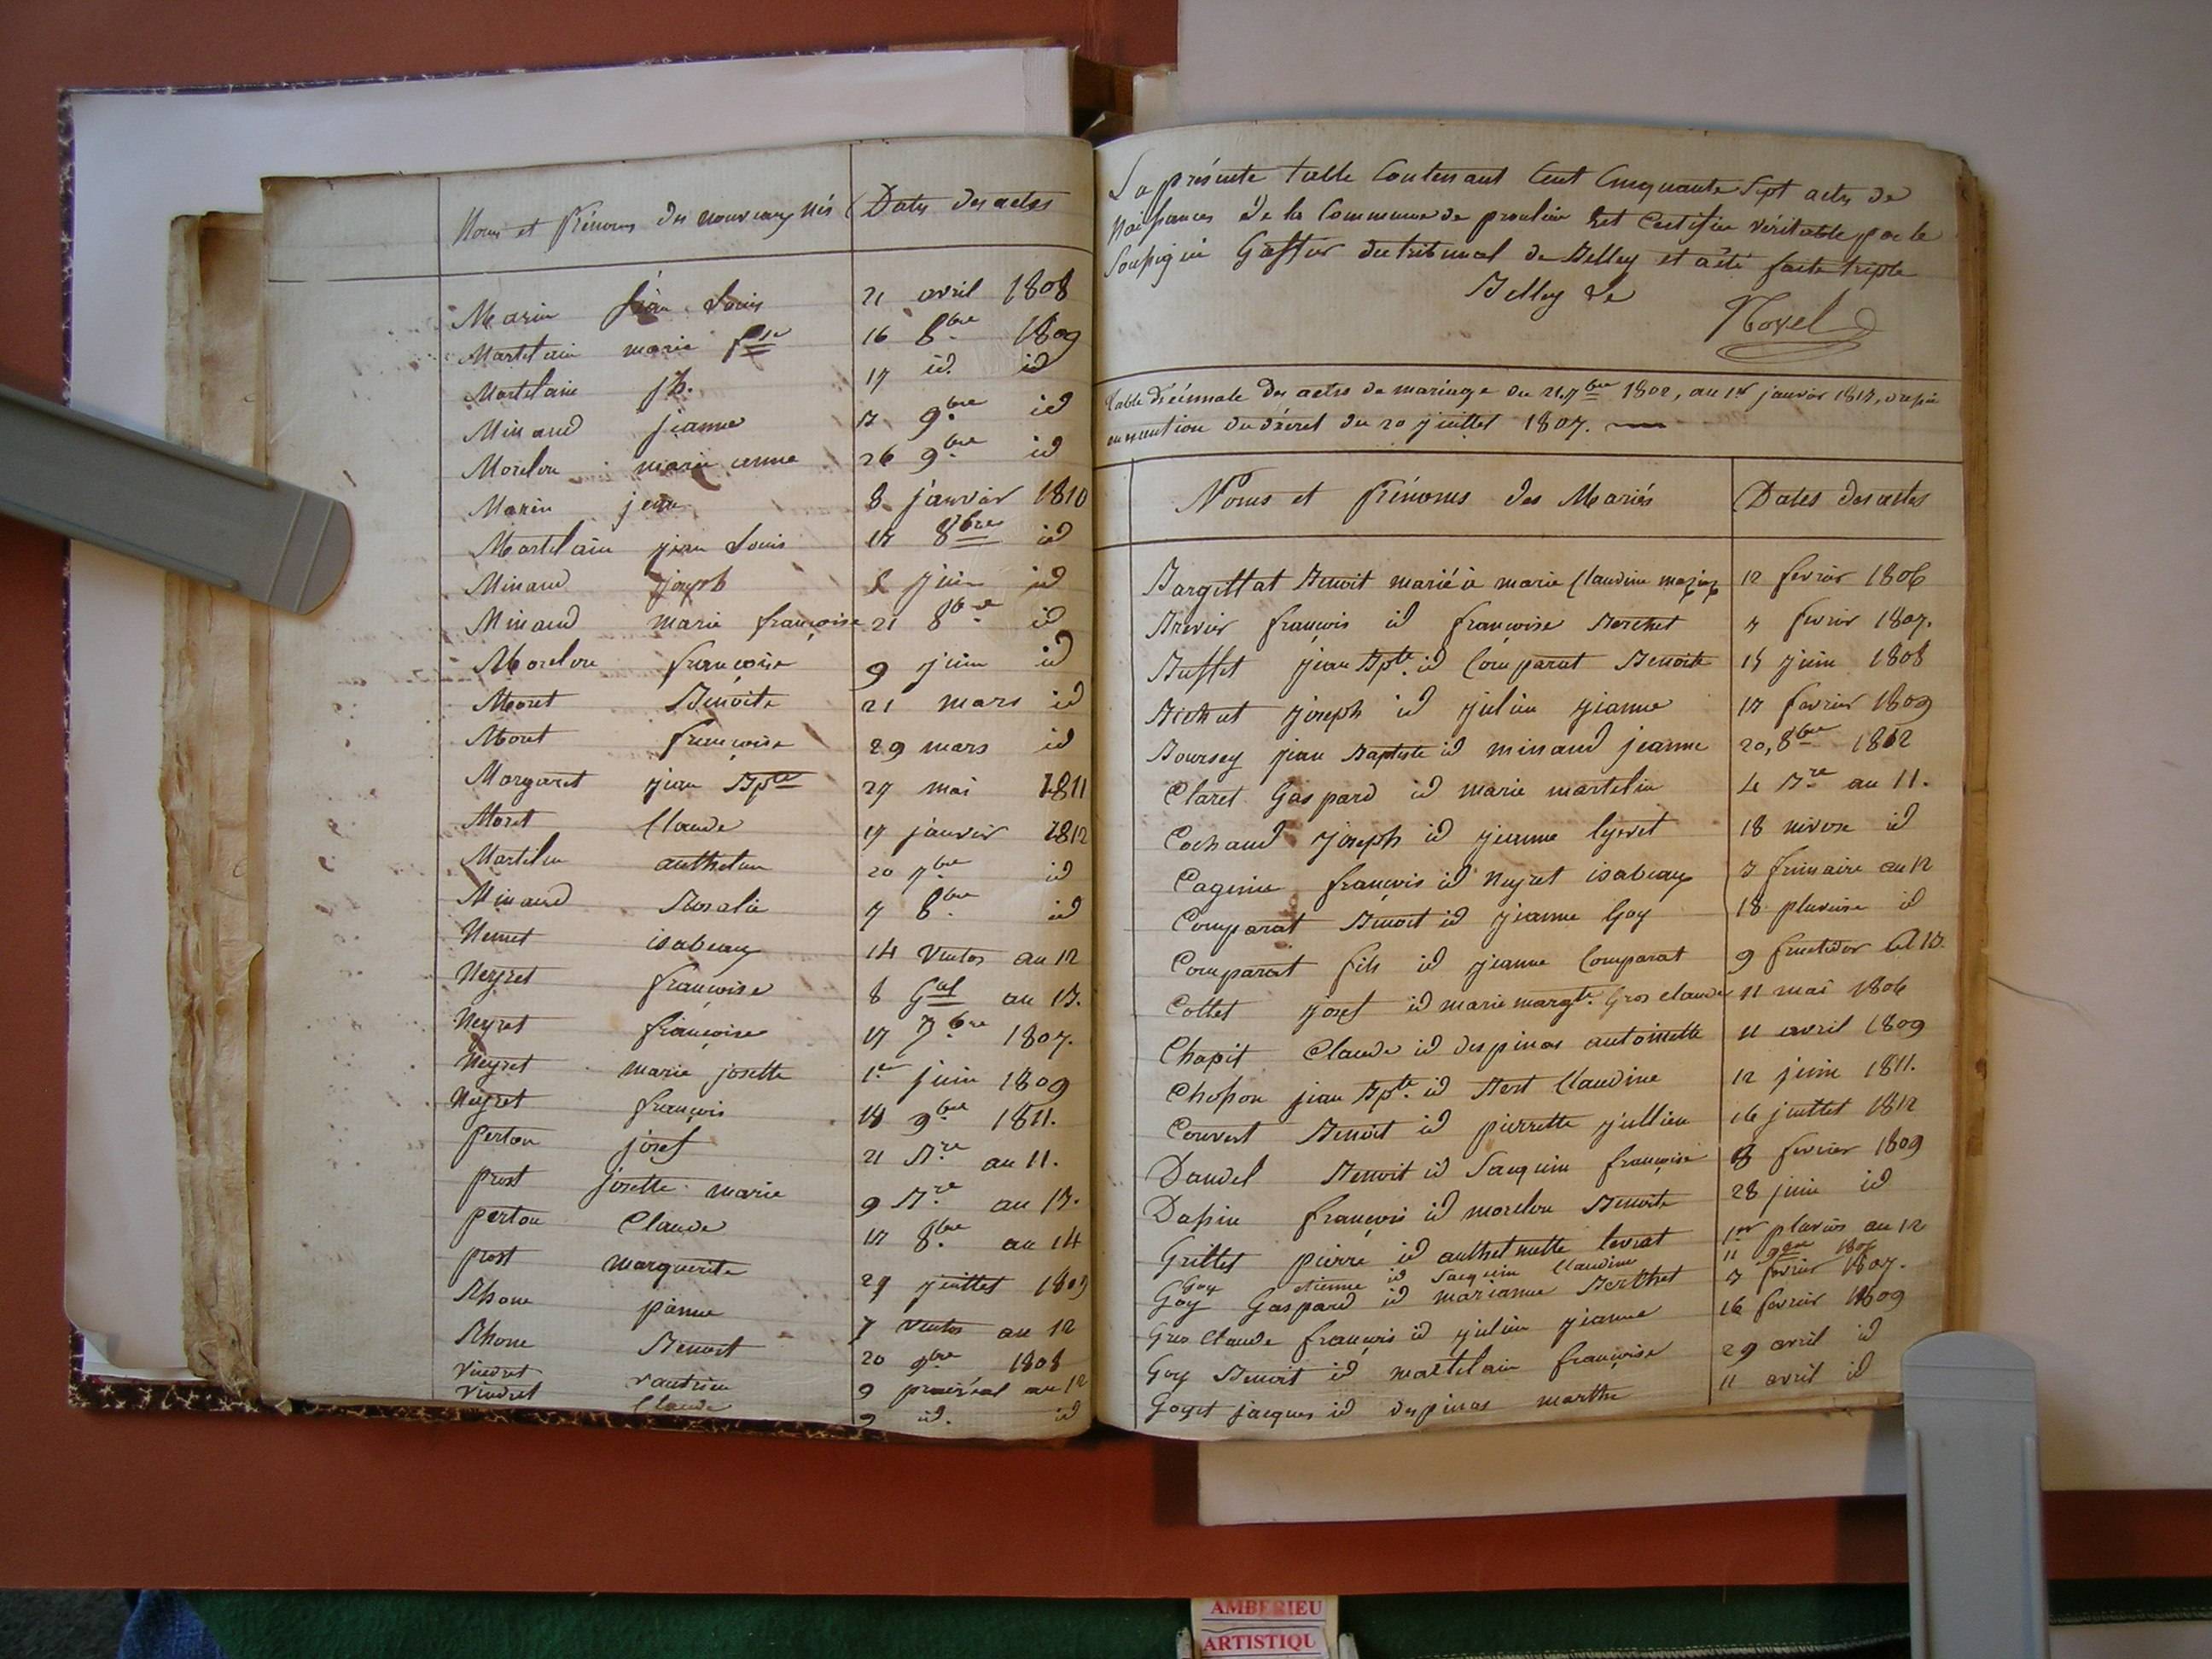 Noms et Prénoms des nouveaux nés Dates des actes
Marin jean Louis 21 avril 1808
Martelain marie fse 16 8bre 1809
Martelain jh. 17 id. id
Minaud jeanne 9bre id
Morelon marie anne 26 9bre id
Marin jean 8 janvier 1810
Martelain jean Louis 8bre id
Minaud joseph juin id
Minaud marie françoise 21 8bre id
Morelon françoise 9 juin id
Moret Benoite 21 mars id
Moret françoise 29 mars id
Margaret jean Bpte 27 mai 1811
Moret Claude 17 janvier 1812
Martelin anthelme 20 7bre id
Minaud Rosalie 7 8bre id
isabeau 14 Ventos an 12
Neyret françoise 8 Gal an 13.
Neyret françoise 17 7bre 1807.
Neyret marie josette 1er juin 1809
Neyret françois 14 9bre 1811.
perton josef 21 Bre an 11.
prost josette marie 9 Bre an 13.
perton Claude 8bre an 14
prost marguerite 27 juillet 1809
Rhone 7 Ventos an 12
Rhone Benoit 20 9bre 1808
Vindret 9 prairéal an 12
Vindret Claude 9 id. id
La présente table Contenant Cent Cinquante Sept actes de
Naissances de la Commune de proulieu est Certifiée véritable par le
Soussigné Greffier du tribunal de Belley et a été faite triple
Belley le
Table décennale des actes de mariage du 21 7bre 1802, au 1er janvier 1813,
en exécution du décret du 20 juillet 1807.
Noms et Prénoms des Mariés Dates des actes
Bargillat Benoit marié à marie Claudine 12 fevrier 1806
Brevier françois id françoise Berthet fevrier 1807.
Buffet jean Bpte. id Comparat Benoite juin 1808
joseph id julien jeanne fevrier 1809
Boursey jean Baptiste id minaud jeanne 20, 8bre 1812
Claret Gaspard id marie martelin 4 Bre an 11.
Cochaud joseph id jeanne 18 nivose id
françois id Neyret isabeau frimaire an 12
Comparat Benoit id jeanne Goy 18 pluviose id
Comparat fils id jeanne Comparat 9 fructidor A 13.
Cottet josef id marie margte. Gros claude 11 mai 1806
Chapit Claude id despinas antoinette 11 avril 1809
Chosson jean Bpte. id Bert Claudine 12 juin 1811.
Convert Benoit id pierrette jullien 16 juillet 1812
Dandel Benoit id Jacquin françoise 8 fevrier 1809
françois id morelon Benoite 28 juin id
Grillet pierre id anthelmette levrat 1er pluvios an 12
Goy etienne id Jacquin Claudine 11 1806
Goy Gaspard id marianne Berthet fevrier 1807.
Gros Claude françois id julien jeanne 16 fevrier 1809
Goy Benoit id martelain françoise 29 avril id
Goyet jacques id despinas marthe 11 avril id
AMBERIEU
ARTISTIQU